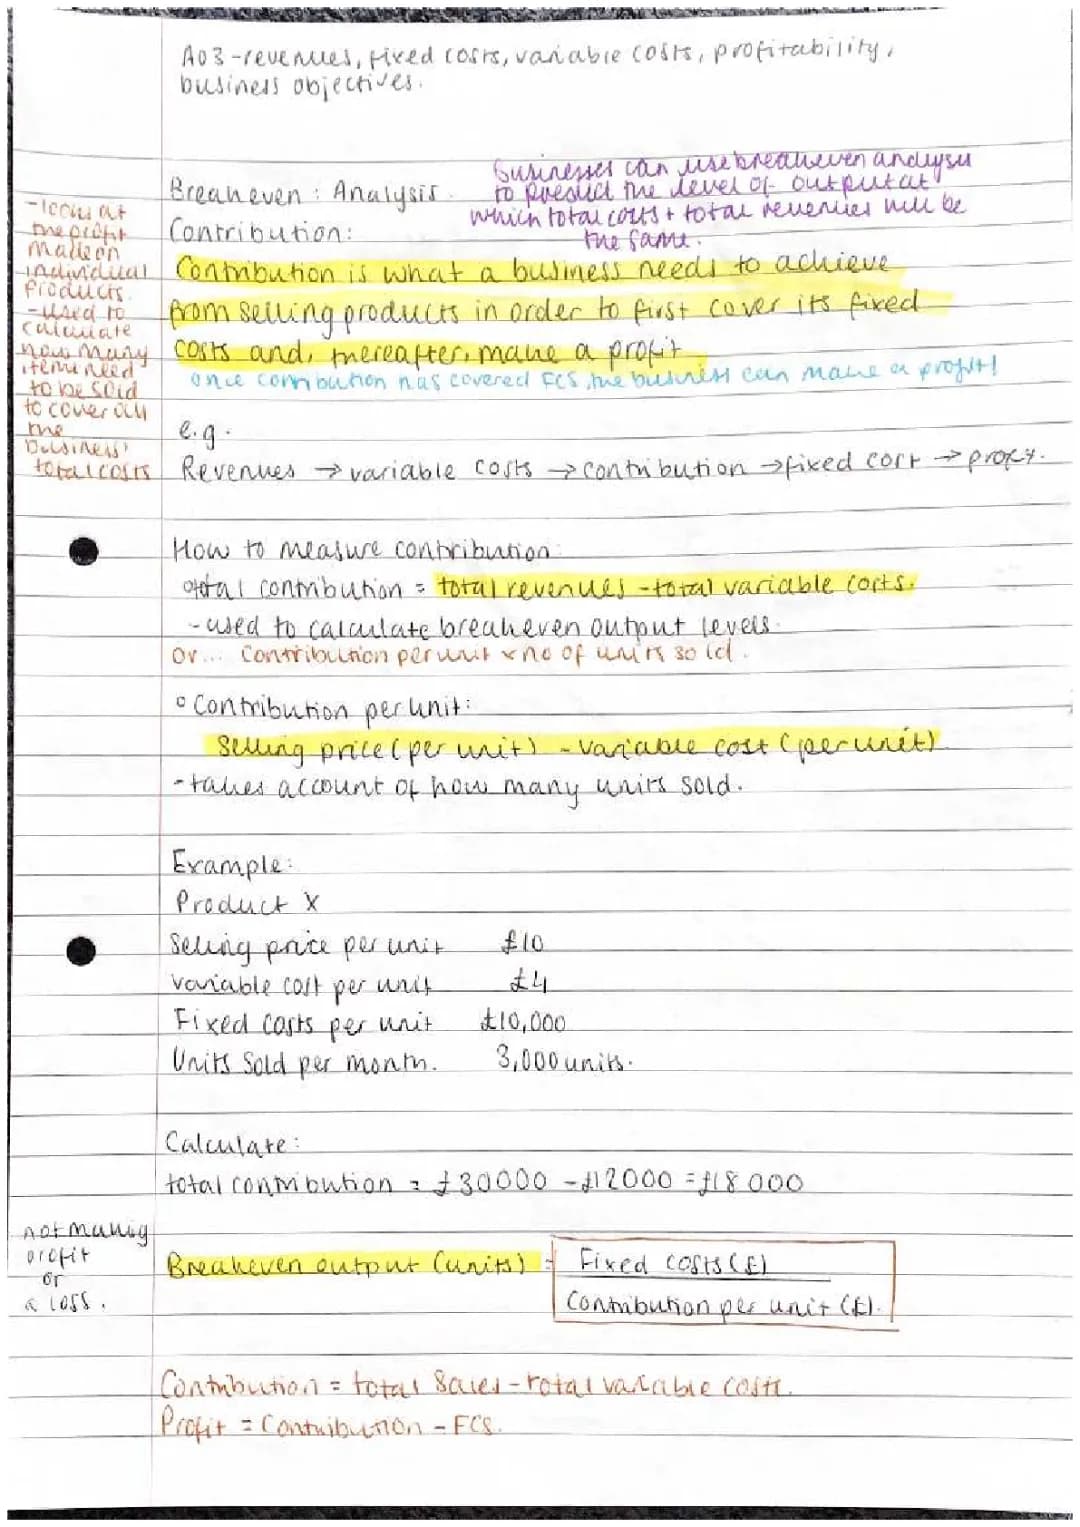 A03 - revenues, fixed costs, variable costs, profitability,
business objectives.
Breakeven : Analysis.
Businesses can use breakeven analysis
to predict the level of output at
which total costs + total revenues will be
the same.
- looks at
the profit
made on
individual
products.
- used to
calculate
how many
items need
to be sold
to cover all
the
business'
total costs
Contribution:
Contribution is what a business needs to achieve
from selling products in order to first cover its fixed
costs and, thereafter, make a profit
once contribution has covered FCS, the business can make a profit!
e.g.
Revenues → variable costs → contribution → fixed cost → profit.
How to measure contribution:
total contribution = total revenues - total variable costs.
- used to calculate breakeven output levels.
Or... Contribution per unit x no of units sold.
° Contribution per unit:
Selling price (per unit) - variable cost (per unit)
- takes account of how many units sold.
Example:
Product X
Selling price per unit £10
variable cost per unit £4
Fixed costs per unit £10,000
Units Sold per month. 3,000 units.
Calculate:
total contribution = £30000 - £12000 = £18 000
not making
profit
or
a loss.
Breakeven output (units) = Fixed costs (£)
Contribution per unit (£).
Contribution = total sales - total variable costs.
Profit = Contribution - FCS.